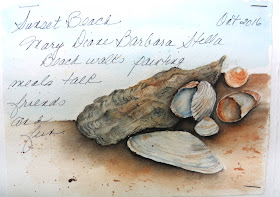 Sunset Beach Oct 2016
Mary Diane Barbara Stella
Beach walks painting
meals talk
friends
and
fun